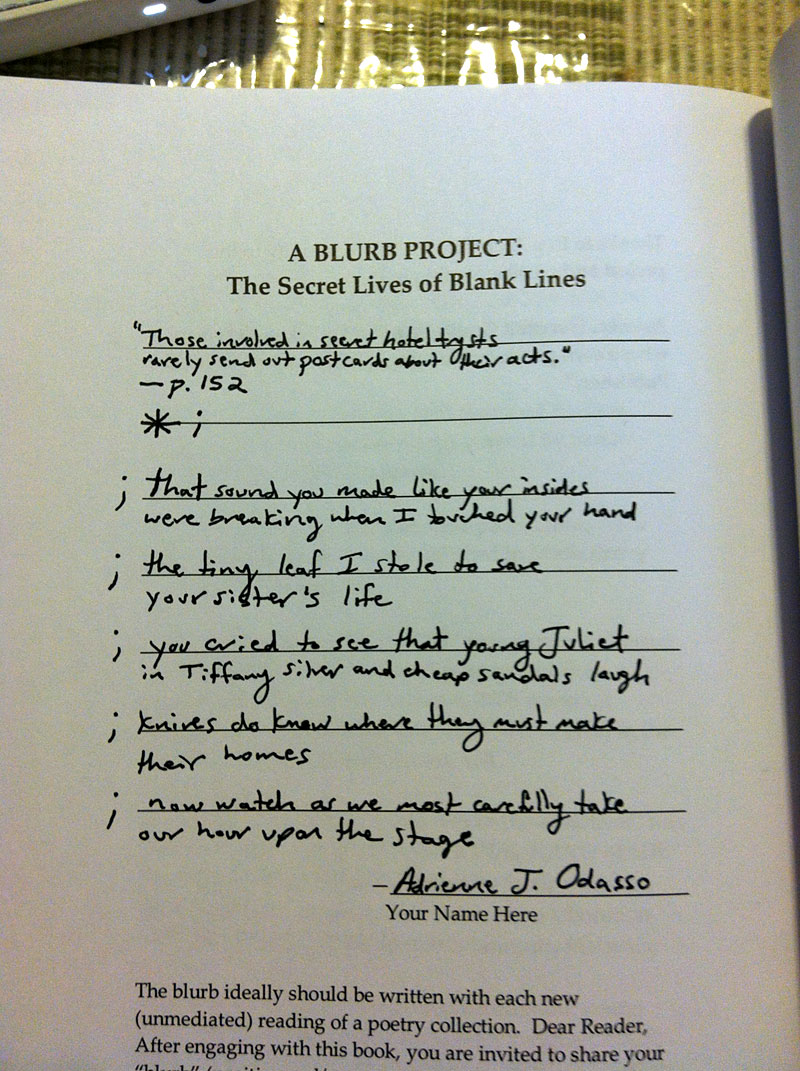 A BLURB PROJECT:
The Secret Lives of Blank Lines
"Those involved in secret hotel trysts
rarely send out postcards about their acts."
— p. 152
* ;
; that sound you made like your insides
were breaking when I touched your hand
; the tiny leaf I stole to save
your sister's life
; you cried to see that young Juliet
in Tiffany silver and cheap sandals laugh
; knives do know where they must make
their homes
; now watch as we most carefully take
our hour upon the stage
– Adrienne J. Odasso
Your Name Here
The blurb ideally should be written with each new
(unmediated) reading of a poetry collection. Dear Reader,
After engaging with this book, you are invited to share your